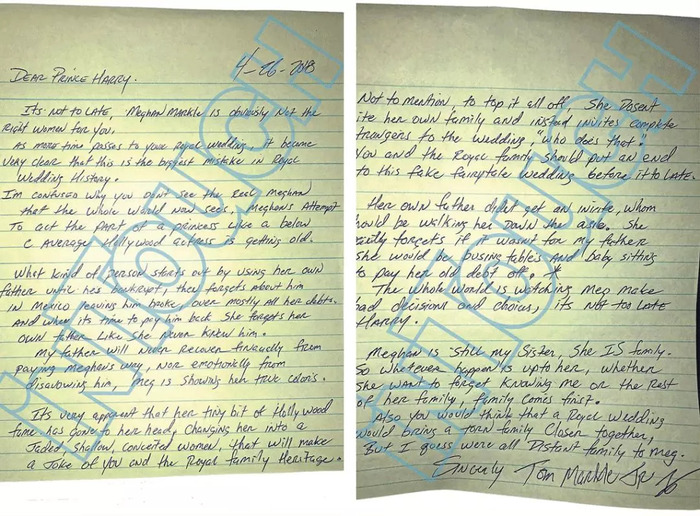 4-26-2018
DEAR PRINCE HARRY.
Its not to LATE, Meghan Markle is obviously Not the
Right women for you,
As more time passes to your Royal wedding, it became
very clear that this is the biggest mistake in Royal
Wedding History.
Im confused why you don't see the Real Meghan
that the whole world now sees, Meghan's Attempt
To act the part of a princess Like a below
C average Hollywood actress is getting old.
What kind of person starts out by using her own
father until hes bankrupt, then forgets about him
in Mexico leaving him broke, over mostly all her debts.
And when its time to pay him back she forgets her
own father Like she never knew him.
My father will never recover financially from
paying Meghans way, nor emotionally from
disavowing him, Meg is showing her true colors.
Its very apparent that her tiny bit of Hollywood
fame has gone to her head, Changing her into a
Jaded, Shallow, conceited women, that will make
a Joke of you and the Royal family Heritage.
Not to mention, to top it all off, She Dosent
ite her own family and instead invites complete
trangers to the wedding, "who does that.
ou and the Royal family should put an end
to this fake fairytale wedding before it to LATE.
Her own father didnt get an invite, whom
hould be walking her Down the aisle. She
forgets if it wasnt for my father
she would be busing tables and baby sitting
to pay her old debt off. *
The whole world is watching Meg make
bad decisions and choices, its NOT too LATE
HARRY.
Meghan is still my Sister, She IS family.
So whatever happen is up to her, whether
she want to forget knowing me or the Rest
of her family, family comes first.
Also you would think that a Royal Wedding
would bring a torn family Closer together,
But I guess were all Distant family to Meg.
Sincerly Tom Markle Jr
INTOUCH
INTOUCH